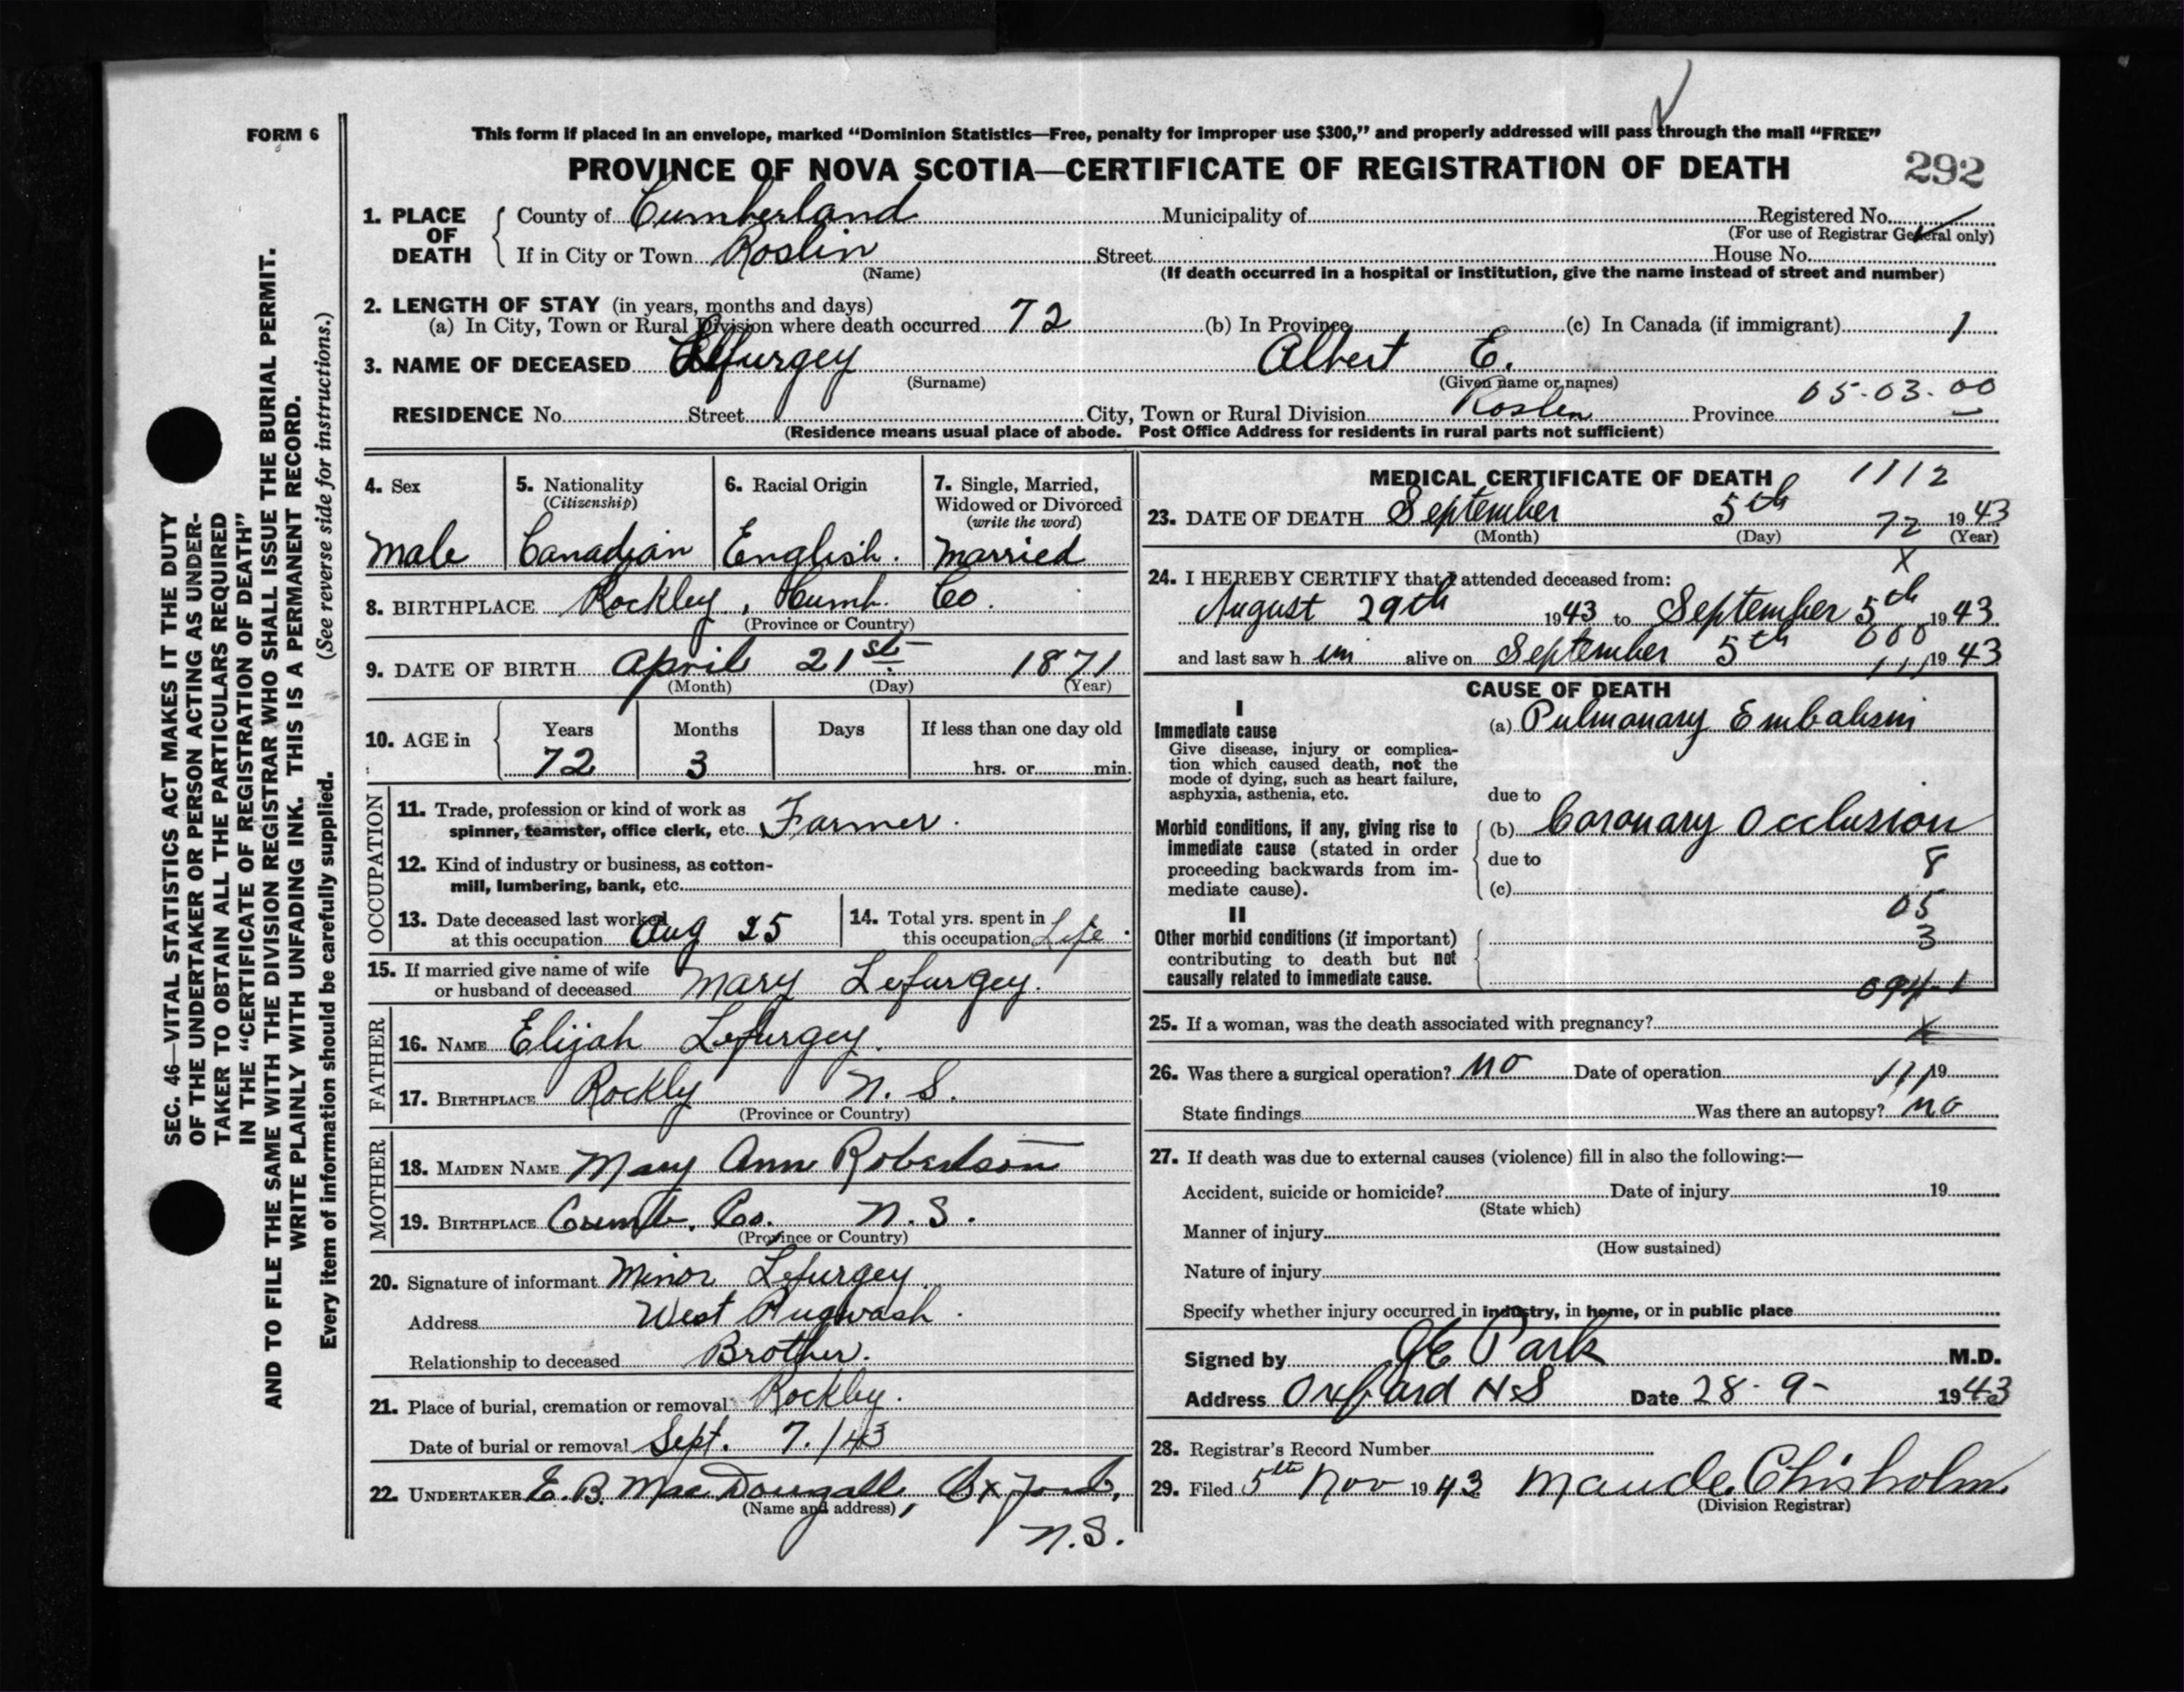 FORM 6
This form if placed in an envelope, marked “Dominion Statistics—Free, penalty for improper use $300,” and properly addressed will pass through the mail “FREE”
PROVINCE OF NOVA SCOTIA—CERTIFICATE OF REGISTRATION OF DEATH
292
1. PLACE OF DEATH
County of Cumberland Municipality of Registered No.
(For use of Registrar General only)
If in City or Town Roslin Street House No.
(Name) (If death occurred in a hospital or institution, give the name instead of street and number)
2. LENGTH OF STAY (in years, months and days)
(a) In City, Town or Rural Division where death occurred 72 (b) In Province (c) In Canada (if immigrant) 1
3. NAME OF DECEASED Lefurgey Albert E.
(Surname) (Given name or names)
05-03-00
RESIDENCE No. Street City, Town or Rural Division Roslen Province
(Residence means usual place of abode. Post Office Address for residents in rural parts not sufficient)
4. Sex
Male
5. Nationality
(Citizenship)
Canadian
6. Racial Origin
English.
7. Single, Married,
Widowed or Divorced
(write the word)
Married
8. BIRTHPLACE Rockley, Cumb. Co.
(Province or Country)
9. DATE OF BIRTH April 21st 1871
(Month) (Day) (Year)
10. AGE in
Years Months Days If less than one day old
72 3 hrs. or min.
OCCUPATION
11. Trade, profession or kind of work as
spinner, teamster, office clerk, etc. Farmer.
12. Kind of industry or business, as cotton-
mill, lumbering, bank, etc.
13. Date deceased last worked
at this occupation Aug 25
14. Total yrs. spent in
this occupation Life.
15. If married give name of wife
or husband of deceased Mary Lefurgey.
FATHER
16. NAME Elijah Lefurgey.
17. BIRTHPLACE Rockly N. S.
(Province or Country)
MOTHER
18. MAIDEN NAME Mary Ann Robertson
19. BIRTHPLACE Cumb. Co. N. S.
(Province or Country)
20. Signature of informant Minor Lefurgey
Address West Pugwash.
Relationship to deceased Brother.
21. Place of burial, cremation or removal Rockley.
Date of burial or removal Sept. 7./43
22. UNDERTAKER E. B. MacDougall, Oxford,
(Name and address)
N.S.
MEDICAL CERTIFICATE OF DEATH 1112
23. DATE OF DEATH September 5th 72 1943
(Month) (Day) (Year)
X
24. I HEREBY CERTIFY that I attended deceased from:
August 29th 1943 to September 5th 1943
000
and last saw h im alive on September 5th 1943
111
CAUSE OF DEATH
I
Immediate cause
Give disease, injury or complica-
tion which caused death, not the
mode of dying, such as heart failure,
asphyxia, asthenia, etc.
(a) Pulmonary Embalism
due to
Morbid conditions, if any, giving rise to
immediate cause (stated in order
proceeding backwards from im-
mediate cause).
(b) Coronary Occlusion
due to 8
(c)
05
II
Other morbid conditions (if important)
contributing to death but not
causally related to immediate cause.
3
094-1
25. If a woman, was the death associated with pregnancy? X
26. Was there a surgical operation? No Date of operation 11, 19
State findings Was there an autopsy? No
27. If death was due to external causes (violence) fill in also the following:—
Accident, suicide or homicide? Date of injury 19
(State which)
Manner of injury
(How sustained)
Nature of injury
Specify whether injury occurred in industry, in home, or in public place
Signed by Park M.D.
Address Oxford N S Date 28-9- 1943
28. Registrar’s Record Number
29. Filed 5th Nov 1943 Maude Chisholm
(Division Registrar)
SEC. 46—VITAL STATISTICS ACT MAKES IT THE DUTY
OF THE UNDERTAKER OR PERSON ACTING AS UNDER-
TAKER TO OBTAIN ALL THE PARTICULARS REQUIRED
IN THE “CERTIFICATE OF REGISTRATION OF DEATH”
AND TO FILE THE SAME WITH THE DIVISION REGISTRAR WHO SHALL ISSUE THE BURIAL PERMIT.
WRITE PLAINLY WITH UNFADING INK. THIS IS A PERMANENT RECORD.
Every item of information should be carefully supplied. (See reverse side for instructions.)